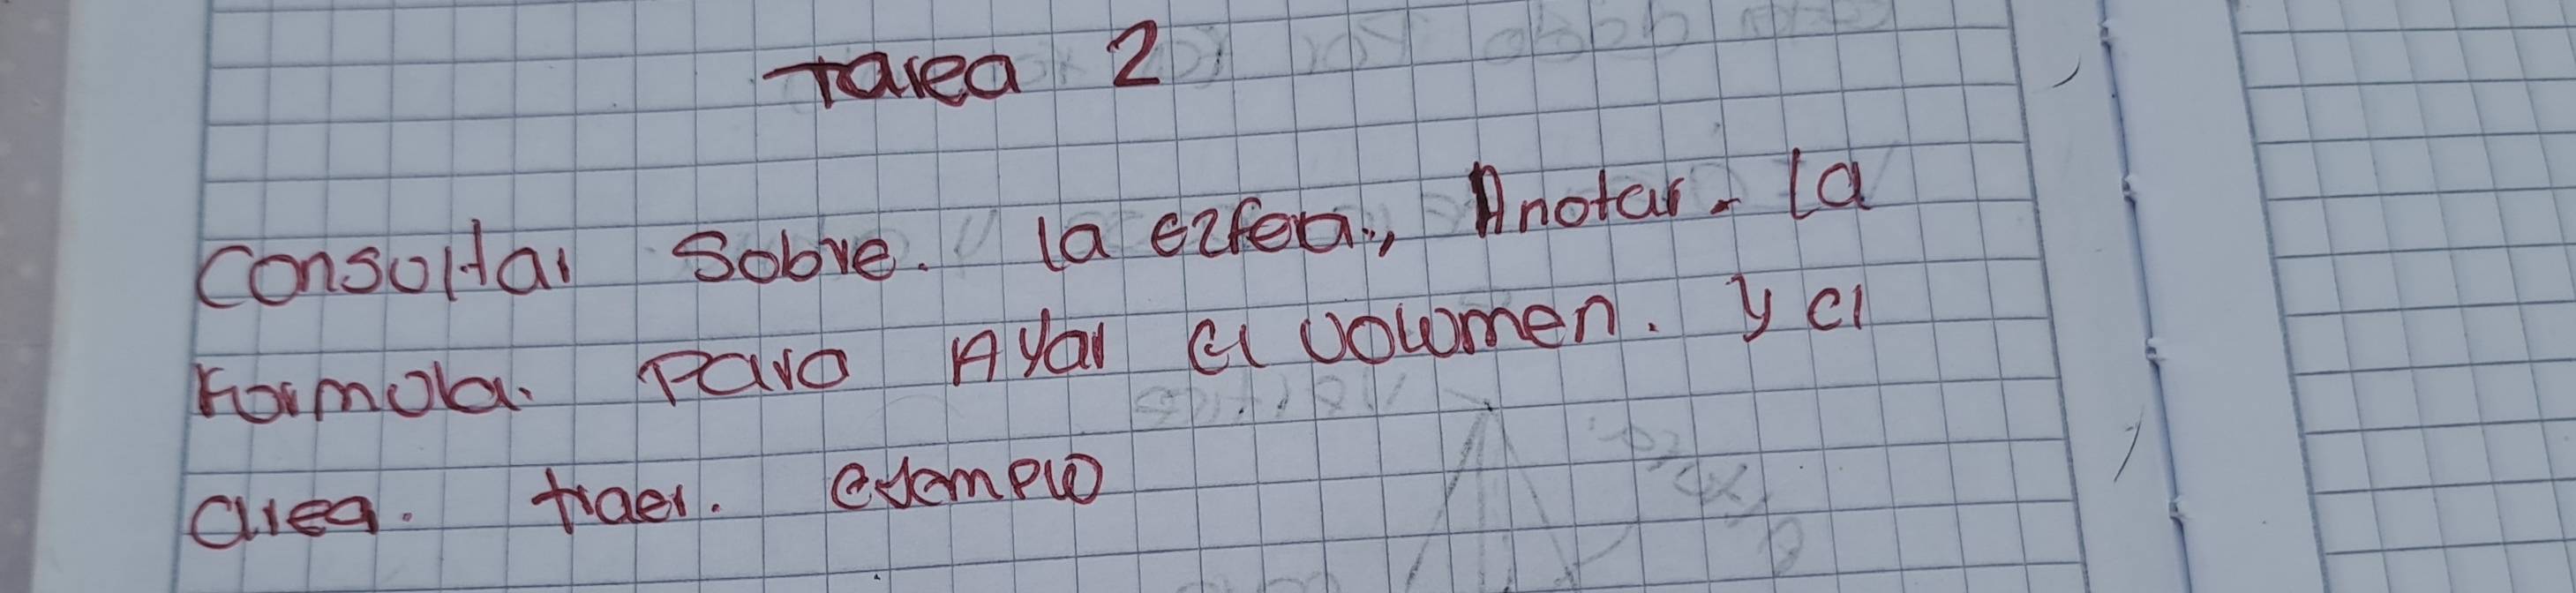 Tarea 2
consultar sobre. la ezfera., Anotar. la
Formula. Para Ayar el volumen. y el
area. traer. ejemplo